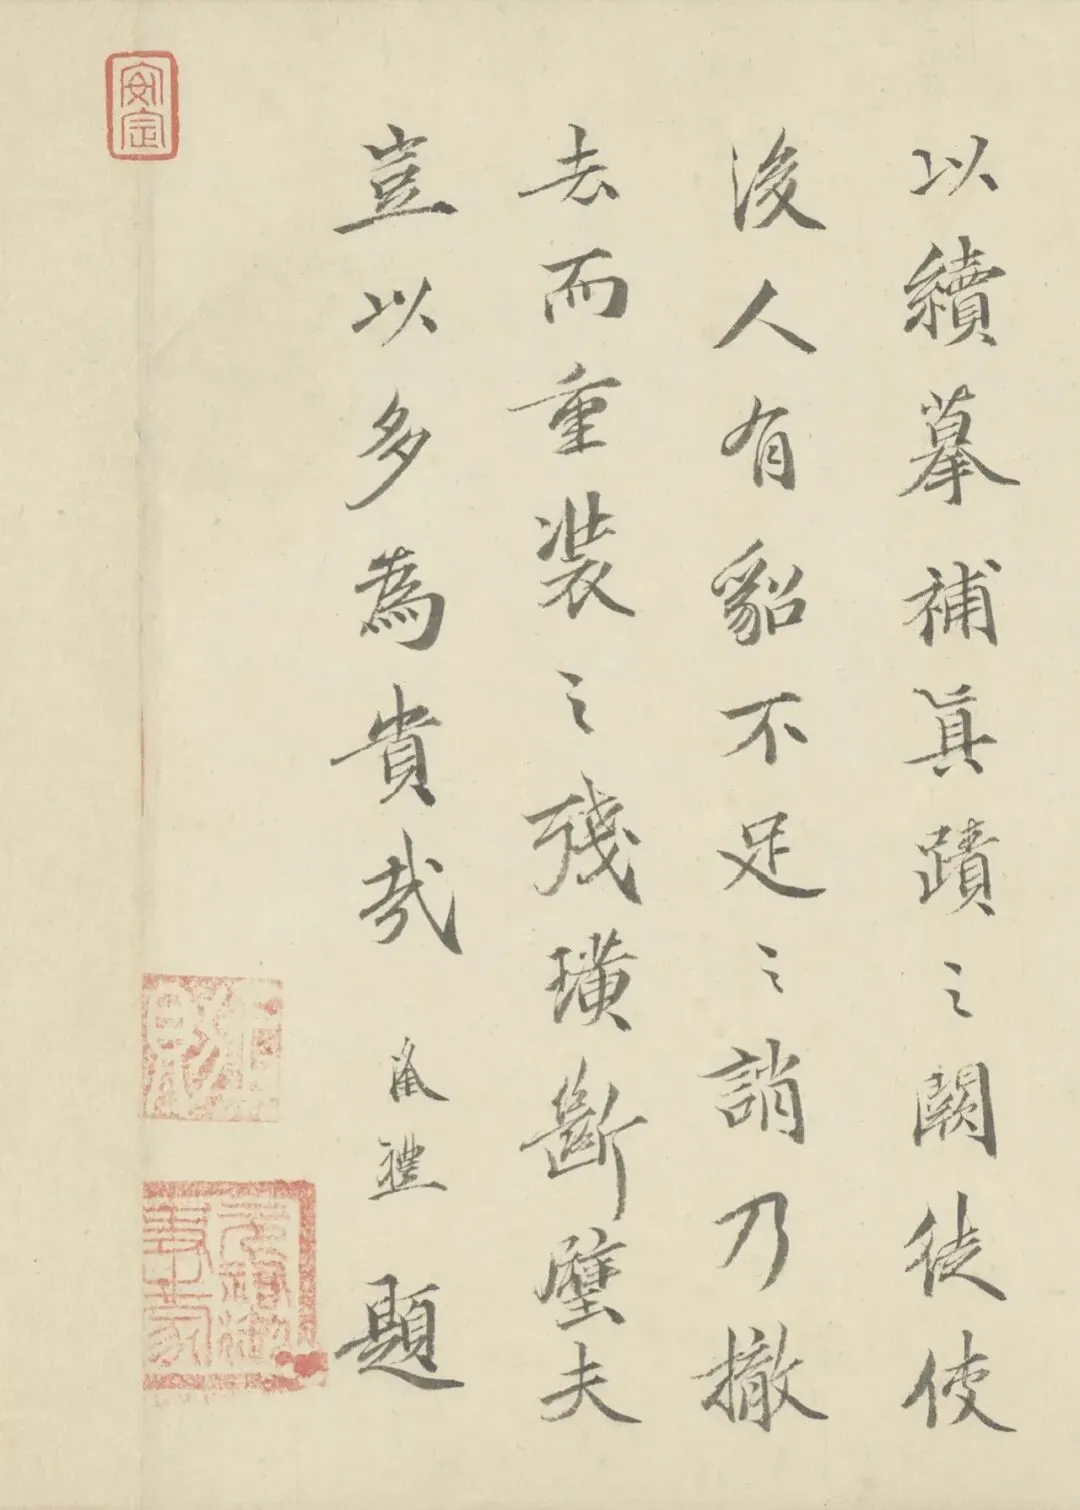 以續摹補眞蹟之闕徒使
後人有貂不足之誚乃撤
去而重裝之殘璜斷璧夫
豈以多為貴哉 禮題
安定